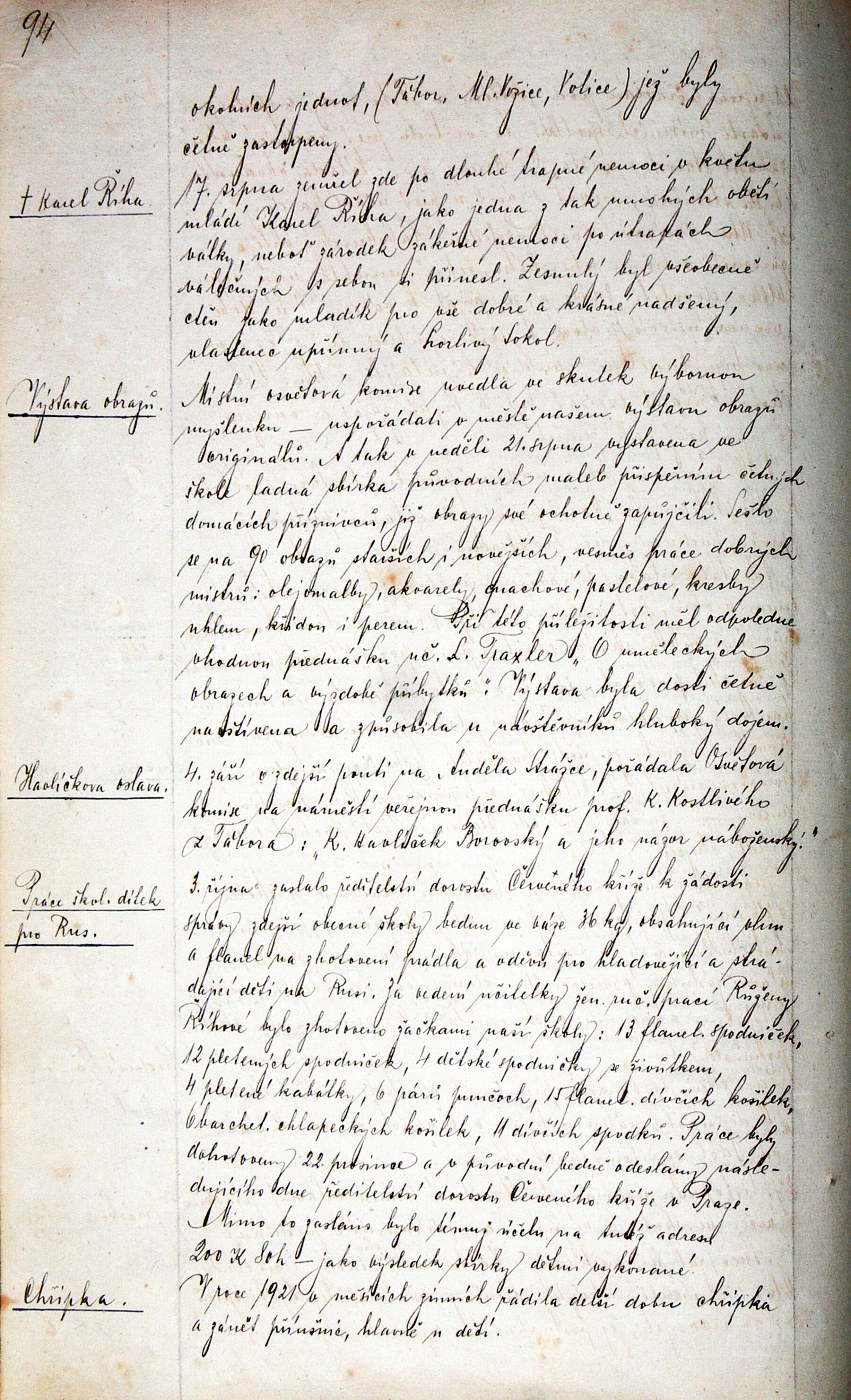 94
okolních jednot, (Tábor, Ml. Vožice, Votice) jež byly
četně zastoupeny.
† Karel Říha.
17. srpna zemřel zde po dlouhé trapné nemoci v květu
mládí Karel Říha, jako jedna z tak mnohých obětí
války, neboť zárodek zákeřné nemoci po útrapách
válečných s sebou si přinesl. Zesnulý byl všeobecně
ctěn jako mladík pro vše dobré a krásné nadšený,
vlastenec upřímný a horlivý Sokol.
Výstava obrazů.
Místní osvětová komise uvedla ve skutek výbornou
myšlenku – uspořádati v městě našem výstavu obrazů
originálů. A tak v neděli 21. srpna vystavena ve
škole ladná sbírka původních maleb přispěním četných
domácích příznivců, již obrazy své ochotně zapůjčili. Sešlo
se na 90 obrazů starších i novějších, vesměs práce dobrých
mistrů: olejomalby, akvarely, quachové, pastelové, kresby
uhlem, křídou i perem. Při této příležitosti měl odpoledne
vhodnou přednášku uč. L. Traxler „O uměleckých
obrazech a výzdobě příbytků“. Výstava byla dosti četně
navštívena a způsobila u návštěvníků hluboký dojem.
Havlíčkova oslava.
4. září o zdejší pouti na Anděla Strážce, pořádala Osvětová
komise na náměstí veřejnou přednášku prof. K. Kostlivého
z Tábora: „K. Havlíček Borovský a jeho názor náboženský.“
Práce škol. dítek
pro Rus.
3. října zaslalo ředitelství dorostu Červeného kříže k žádosti
správy zdejší obecné školy bednu ve váze 36 kg, obsahující vlnu
a flanel na zhotovení prádla a oděvu pro hladovějící a strá-
dající děti na Rusi. Za vedení učitelky žen. ruč. prací Růženy
Říhové bylo zhotoveno žačkami naší školy: 13 flanel. spodniček,
12 pletených spodniček, 4 dětské spodničky se živůtkem,
4 pletené kabátky, 6 párů punčoch, 15 flanel. dívčích košilek,
6 barchet. chlapeckých košilek, 11 dívčích spodků. Práce byly
dohotoveny 22. prosince a v původní bedně odeslány násle-
dujícího dne ředitelství dorostu Červeného kříže v Praze.
Mimo to zasláno bylo témuž účelu na tutéž adresu
200 K 80h – jako výsledek sbírky dětmi vykonané.
Chřipka.
V roce 1921 v měsících zimních řádila delší dobu chřipka
a zánět příušnic, hlavně u dětí.